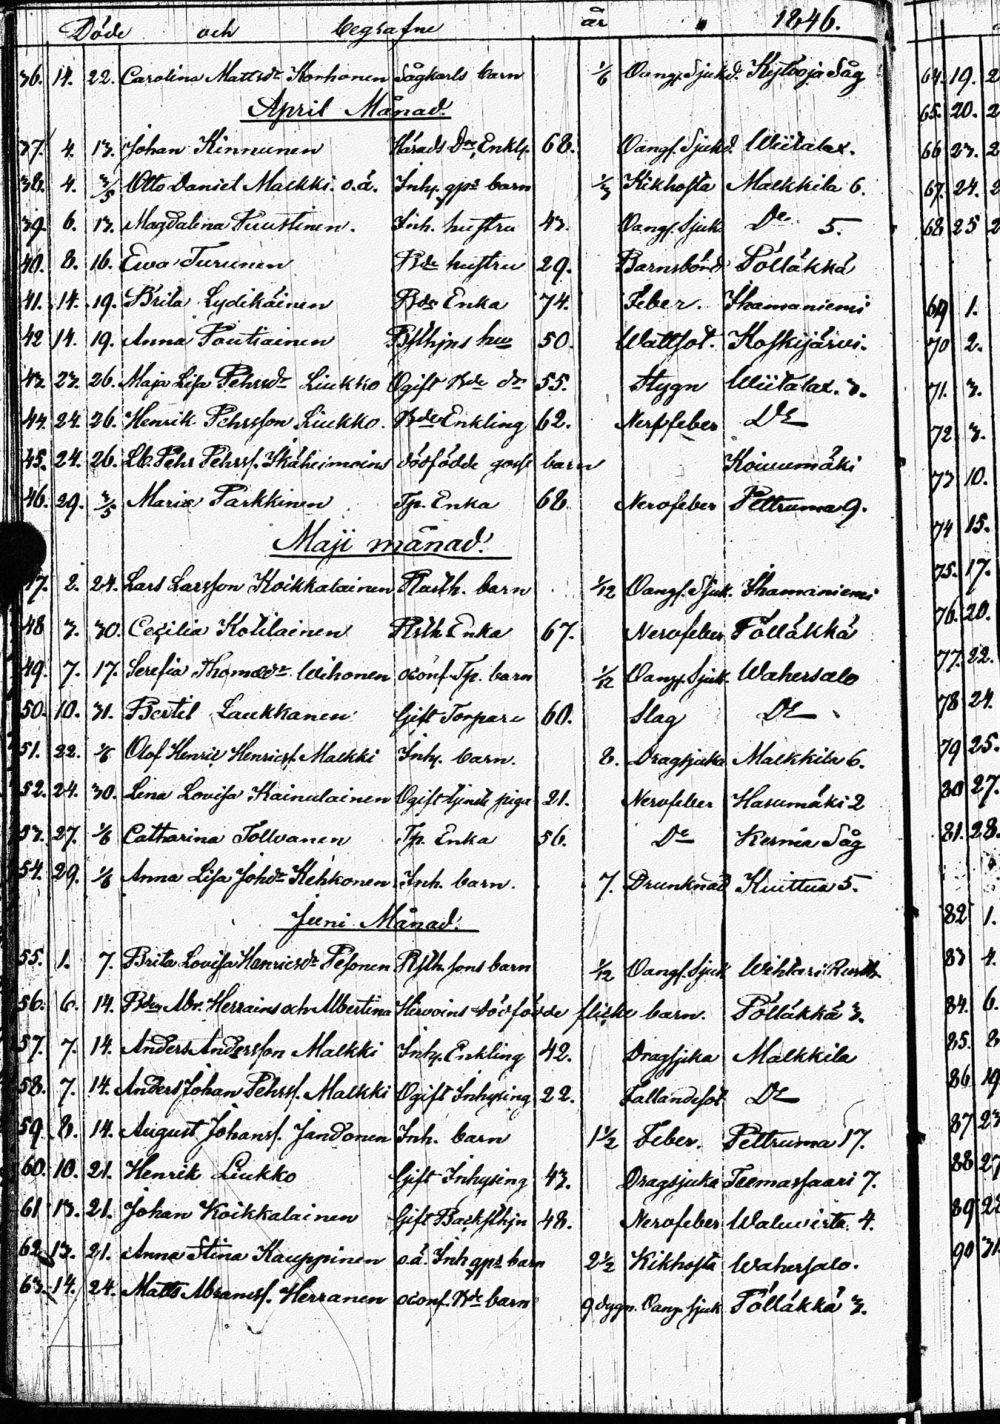 Döde och begrafne år " 1846.
36. 14. 22. Carolina Mattsdr Korhonen Sågkarls barn 1/6 Oang. Sjukd. Kytöoja Såg
April Månad.
37. 4. 13. Johan Kinnunen Härads Dr Enkl. 68. Oang. Sjukd. Wiitalax.
38. 4. 3/5 Otto Daniel Malkki o.ä. Inh. gps barn 1/3 Kikhosta Malkkila 6.
39. 6. 13. Magdalena Tuustinen. Inh. hustru 43. Oang. Sjuk. Do 5.
40. 8. 16. Ewa Turunen Bde hustru 29. Barnsbörd Pölläkkä
41. 14. 19. Brita Lydikäinen Bde Enka 74. Feber.
42. 14. 19. Anna Toutiainen 50. Wattsot. Koskijärvi.
43. 23. 26. Maja Lisa Pehrsdr Liukko Ogift Bde dr 55. Stygn Wiitalax. 3.
44. 24. 26. Henrik Pehrsson Liukko. Bde Enkling 62. Nerffeber Do
45. 24. 26. Pehr Pehrss. dödfödde goss barn Koivumäki
46. 29. 3/5 Maria Parkkinen Tp. Enka 68 Nervfeber Pettruma 9.
Maji månad.
47. 2. 24. Lars Larsson Koikkalainen Rusth. barn 1/12 Oang. Sjuk.
48 3. 30. Cecilia Kotilainen Rsth Enka 67. Nervfeber Pölläkkä
49. 7. 17. Serefia Thomaedr Wihonen oconf. Tp. barn 1/12 Oang. Sjuk. Wahersalo
50. 10. 31. Bertil Laukkanen Gift Torpare 60. Slag Do
51. 22. 1/6 Olof Henric Henricss. Malkki Inh. barn. 8. Dragsjuka Malkkila 6.
52. 24. 30. Lena Lovisa Kainulainen Ogift tjenste piga 21. Nervfeber Hasumäki 2
53. 27. 1/6 Catharina Tollvanen Tp. Enka 56. Do Kerma Såg
54. 29. 1/6 Anna Lisa Johdr Kehkonen Inh. barn. 7. Drunknad Kuittua 5.
Juni Månad.
55. 1. 7. Brita Lovisa Henricsdr Pesonen Rsth. sons barn 1/12 Oang. Sjuk
56. 6. 14. Bden Abr. Herrains och Albertina Hirvoins dödfödde flicke barn. Pölläkkä 3.
57. 7. 14. Anders Andersson Malkki Inh. Enkling 42. Dragsjuka Malkkila
58. 7. 14. Anders Johan Pehrss. Malkki Ogift Inhysing 22. Fallandesot Do
59. 8. 14. August Johanss. Jandonen Inh. barn 1 1/2 Feber. Pettruma 17.
60. 10. 21. Henrik Liukko Gift Inhysing 43. Dragsjuka Teemassaari 7.
61 13. 21. Johan Koikkalainen Gift Backsthjn 48. Nervfeber Waluvirta 4.
62 13. 21. Anna Stina Kauppinen o.ä. Inh gps barn 2 1/2 Kikhosta Wahersalo.
63. 14. 24. Matts Abramss. Herranen oconf. Bde barn 9 dygn. Oang. sjuk. Pölläkkä 3.
64. 19.
65. 20.
66 23.
67. 24.
68 25
69 1.
70 2.
71. 3.
72 3.
73 10.
74 15.
75. 17.
76. 20.
77. 22.
78 24.
79 25.
80 27.
81. 28.
82 1.
83 4.
84. 6.
85. 8
86 19
87 23
88 27
89 28
90 31